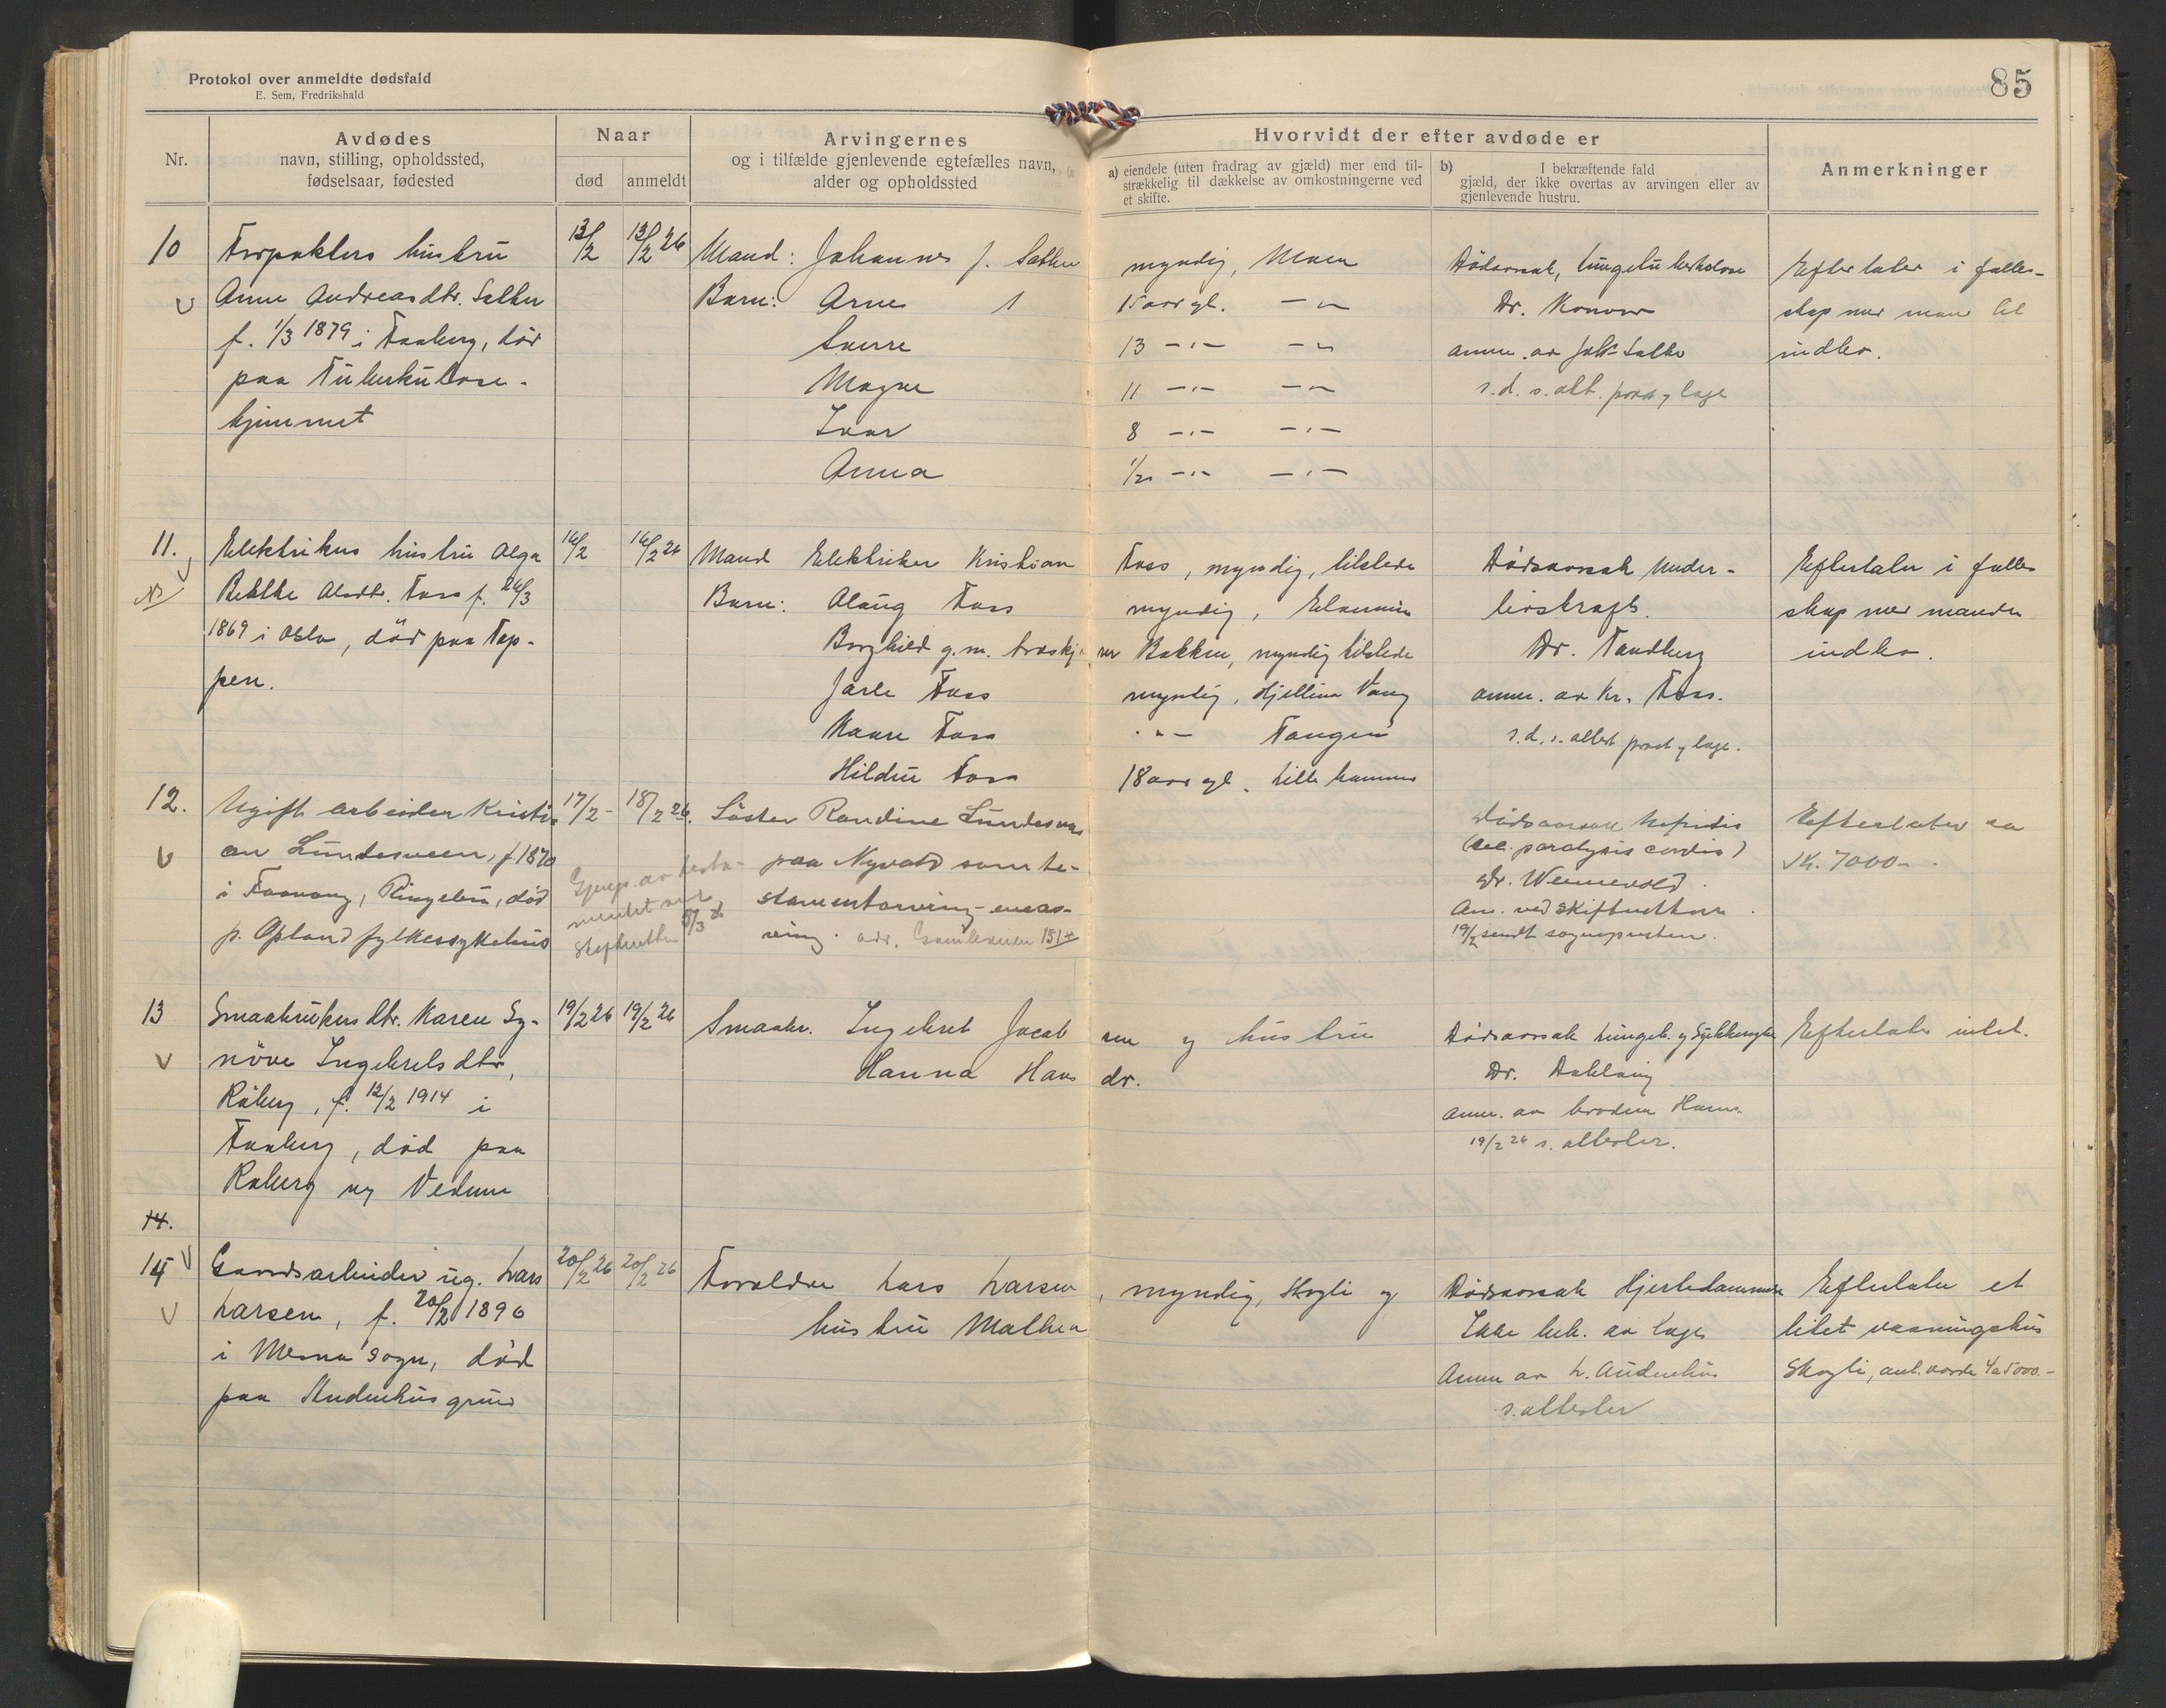 Protokol over anmeldte dødsfald
E. Sem, Fredrikshald
85
Nr.
Avdødes
navn, stilling, opholdssted,
fødselsaar, fødested
Naar
død
anmeldt
Arvingernes
og i tilfælde gjenlevende egtefælles navn,
alder og opholdssted
Hvorvidt der efter avdøde er
a) eiendele (uten fradrag av gjæld) mer end til-
strækkelig til dækkelse av omkostningerne ved
et skifte.
b) I bekræftende fald
gjæld, der ikke overtas av arvingen eller av
gjenlevende hustru.
Anmerkninger
10
Forpakters hustru
Anne Andreasdtr.
f. 1/3 1879 i Faaberg, død
paa Tuberkulose-
hjemmet
13/2
13/2 26
Mand: Johannes J.
Barn: Arne
Sverre
Magne
Ivar
Anna
myndig,
15 aar gl. -"-
13 -"- -"-
11 -"- -"-
8 -"- -"-
-"- -"-
Dødsaarsak, lungetuberkulose
Dr. Konow
anm. av
s.d. s. att. prest og læge
Efterlater i fælles-
skap med mand litt
indbo.
11.
Elektrikers hustru Olga
Foss f.
1869 i Oslo, død paa Top-
pen.
16/2
16/2 26
Mand Elektriker Kristian Foss, myndig, tilstede
Barn: Aslaug Foss myndig,
Borghild g.m. Bakken, myndig tilstede
Jarle Foss myndig, Vang
Kaare Foss -"- Tangen
Hildur Foss 18 aar gl. Lillehammer
Dødsaarsak Under-
livskræft.
Dr. Tandberg
anm. av Kr. Foss.
s.d. s. attest prest og læge.
Efterlater i fælles
skap med manden
indbo.
12.
Ugift arbeider Kristi-
an Lundesveen, f. 1870
i Faavang, Ringebu, død
p. Opland fylkessykehus
17/2 -
18/2 26.
Gjenp. av testa-
mentet
skifteretten
Søster Randine Lundesveen
paa Nyvold som te-
stamentarving - enear-
ving. adr. Gamleveien 151
Dødsaarsak Nefritis
paralysis cordis)
Dr. Wennevold.
Anm. ved skifteretten.
19/2 sendt sognepresten.
Efterlater ca
Kr. 7000-.
13
Smaabrukers dtr. Karen Sy-
nøve Ingebretsdtr,
Røberg, f. 12/2 1914 i
Faaberg, død paa
Roberg
19/2 26
19/2 26
Smaabr. Ingebret Jacobsen og hustru
Hanna Hansdr.
Dødsaarsak lungeb. og
Dr. Dahlaug
anm. av broderen
19/2 26 s. attester.
Efterlater intet.
14.
14
Gaardsarbeider ug. Lars
Larsen, f. 20/2 1890
i Mesna sogn, død
paa
20/2 26
20/2 26
Forældre Lars Larsen, myndig, Skogli og
hustru Mathea
Dødsaarsak Hjertelammelse
Ikke beh. av læge
Anm av L.
s. attester
Efterlater et
litet vaaningshus
Skogli,